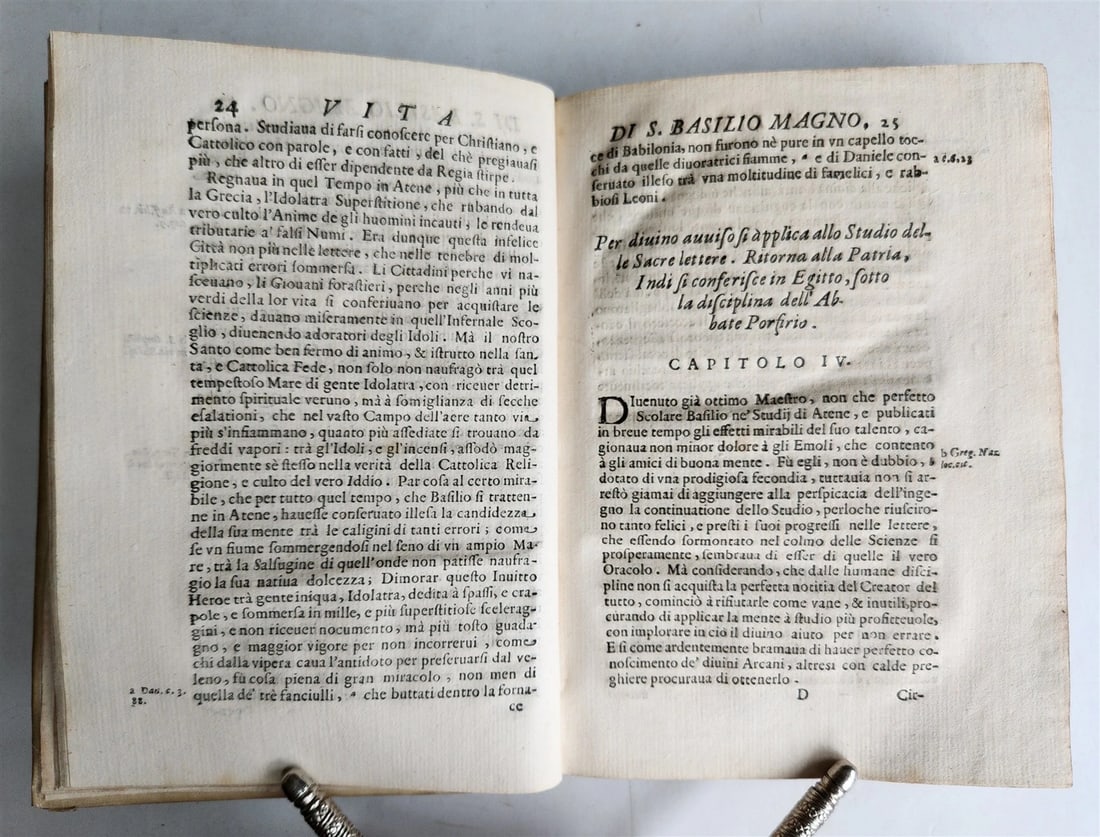 24 VITA
perſona. Studiaua di farſi conoſcere per Chriſtiano, e
Cattolico con parole, e con fatti, del chè pregiauaſi
più, che altro di eſſer dipendente da Regia ſtirpe.
Regnaua in quel Tempo in Atene, più che in tutta
la Grecia, l'Idolatra Superſtitione, che rubando dal
vero culto l'Anime de gli huomini incauti, le rendeua
tributarie a' falſi Numi. Era dunque queſta infelice
Città non più nelle lettere, che nelle tenebre di mol-
tiplicati errori ſommerſa. Li Cittadini perche vi na-
ſceuano, li Giouani foraſtieri, perche negli anni più
verdi della lor vita ſi conferiuano per acquiſtare le
ſcienze, dauano miſeramente in quell'Infernale Sco-
glio, diuenendo adoratori degli Idoli. Mà il noſtro
Santo come ben fermo di animo, & iſtrutto nella ſan-
ta, e Cattolica Fede, non ſolo non naufragò trà quel
tempeſtoſo Mare di gente Idolatra, con riceuer detri-
mento ſpirituale veruno, mà à ſomiglianza di ſecche
eſalationi, che nel vaſto Campo dell'aere tanto via
più s'infiammano, quanto più aſſediate ſi trouano da
freddi vapori: trà gl'Idoli, e gl'incenſi, aſſodò mag-
giormente sè ſteſſo nella verità della Cattolica Reli-
gione, e culto del vero Iddio. Par coſa al certo mira-
bile, che per tutto quel tempo, che Baſilio ſi tratten-
ne in Atene, haueſſe conſeruato illeſa la candidezza
della ſua mente trà le caligini di tanti errori; come
ſe vn fiume ſommergendoſi nel ſeno di vn ampio Ma-
re, trà la Salſugine di quell'onde non patiſſe naufra-
gio la ſua natiua dolcezza; Dimorar queſto Inuitto
Heroe trà gente iniqua, Idolatra, dedita à ſpaſſi, e cra-
pole, e ſommerſa in mille, e più ſuperſtitioſe ſcelerag-
gini, e non riceuer nocumento, mà più toſto guada-
gno, e maggior vigore per non incorrerui, come
chi dalla vipera caua l'antidoto per preſeruarſi dal ve-
leno, fù coſa piena di gran miracolo, non men di
quella de' trè fanciulli, a che buttati dentro la forna-
a Dan. c. 3.
88.
ce
DI S. BASILIO MAGNO, 25
ce di Babilonia, non furono nè pure in vn capello toc-
chi da quelle diuoratrici fiamme, a e di Daniele con-
ſeruato illeſo trà vna moltitudine di famelici, e rab-
bioſi Leoni.
a c. 6. 23
Per diuino auuiſo ſi àpplica allo Studio del-
le Sacre lettere. Ritorna alla Patria,
Indi ſi conferiſce in Egitto, ſotto
la diſciplina dell'Ab-
bate Porfirio.
CAPITOLO IV.
DIuenuto già ottimo Maeſtro, non che perfetto
Scolare Baſilio ne' Studij di Atene, e publicati
in breue tempo gli effetti mirabili del ſuo talento, ca-
gionaua non minor dolore à gli Emoli, che contento
à gli amici di buona mente. Fù egli, non è dubbio, b
dotato di vna prodigioſa fecondia, tuttauia non ſi ar-
reſtò giamai di aggiungere alla perſpicacia dell'inge-
gno la continuatione dello Studio, perloche riuſciro-
no tanto felici, e preſti i ſuoi progreſſi nelle lettere,
che eſſendo ſormontato nel colmo delle Scienze ſi
proſperamente, ſembraua di eſſer di quelle il vero
Oracolo. Mà conſiderando, che dalle humane diſci-
pline non ſi acquiſta la perfetta notitia del Creator del
tutto, cominciò à rifiutarle come vane, & inutili, pro-
curando di applicar la mente à ſtudio più profitteuole,
con implorare in ciò il diuino aiuto per non errare.
E ſi come ardentemente bramaua di hauer perfetto co-
noſcimento de' diuini Arcani, altresi con calde pre-
ghiere procuraua di ottenerlo.
b Greg. Naz.
loc. cit.
D Cir-